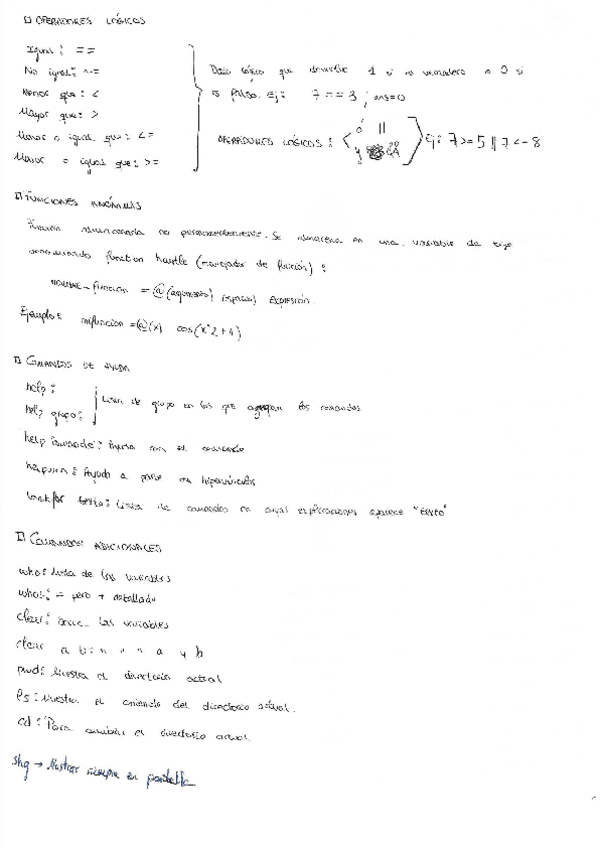 OPERADORES LÓGICOS
Igual: ==
No igual: ~=
Menor que: <
Mayor que: >
Menor o igual que: <=
Mayor o igual que: >=
Dato lógico que devuelve 1 si es verdadero o 0 si
es falso. Ej: 7 == 3; ans=0
OPERADORES LÓGICOS: ó || y Ej: 7>=5 || 7<-8
FUNCIONES ANÓNIMAS
Función almacenada no permanentemente. Se almacena en una variable de tipo
function handle (manejador de función):
NOMBRE_función = @(argumento) (espacio) EXPRESIÓN.
Ejemplo: mifuncion = @(x) cos(x^2+4)
COMANDOS DE AYUDA
help:
help grupo:
Lista de grupo en los que agrupan los comandos
help comando: Ayuda con el comando
helpwin: Ayuda a parte en hipervínculos
lookfor texto: Lista de comandos en cuyas explicaciones aparece "texto"
COMANDOS ADICIONALES
who: lista de las variables
whos: = pero + detallado
clear: borra las variables
clear a b: " " " a y b
pwd: Muestra el directorio actual
ls: Muestra el contenido del directorio actual.
cd: Para cambiar el directorio actual
shg → Mostrar siempre en pantalla